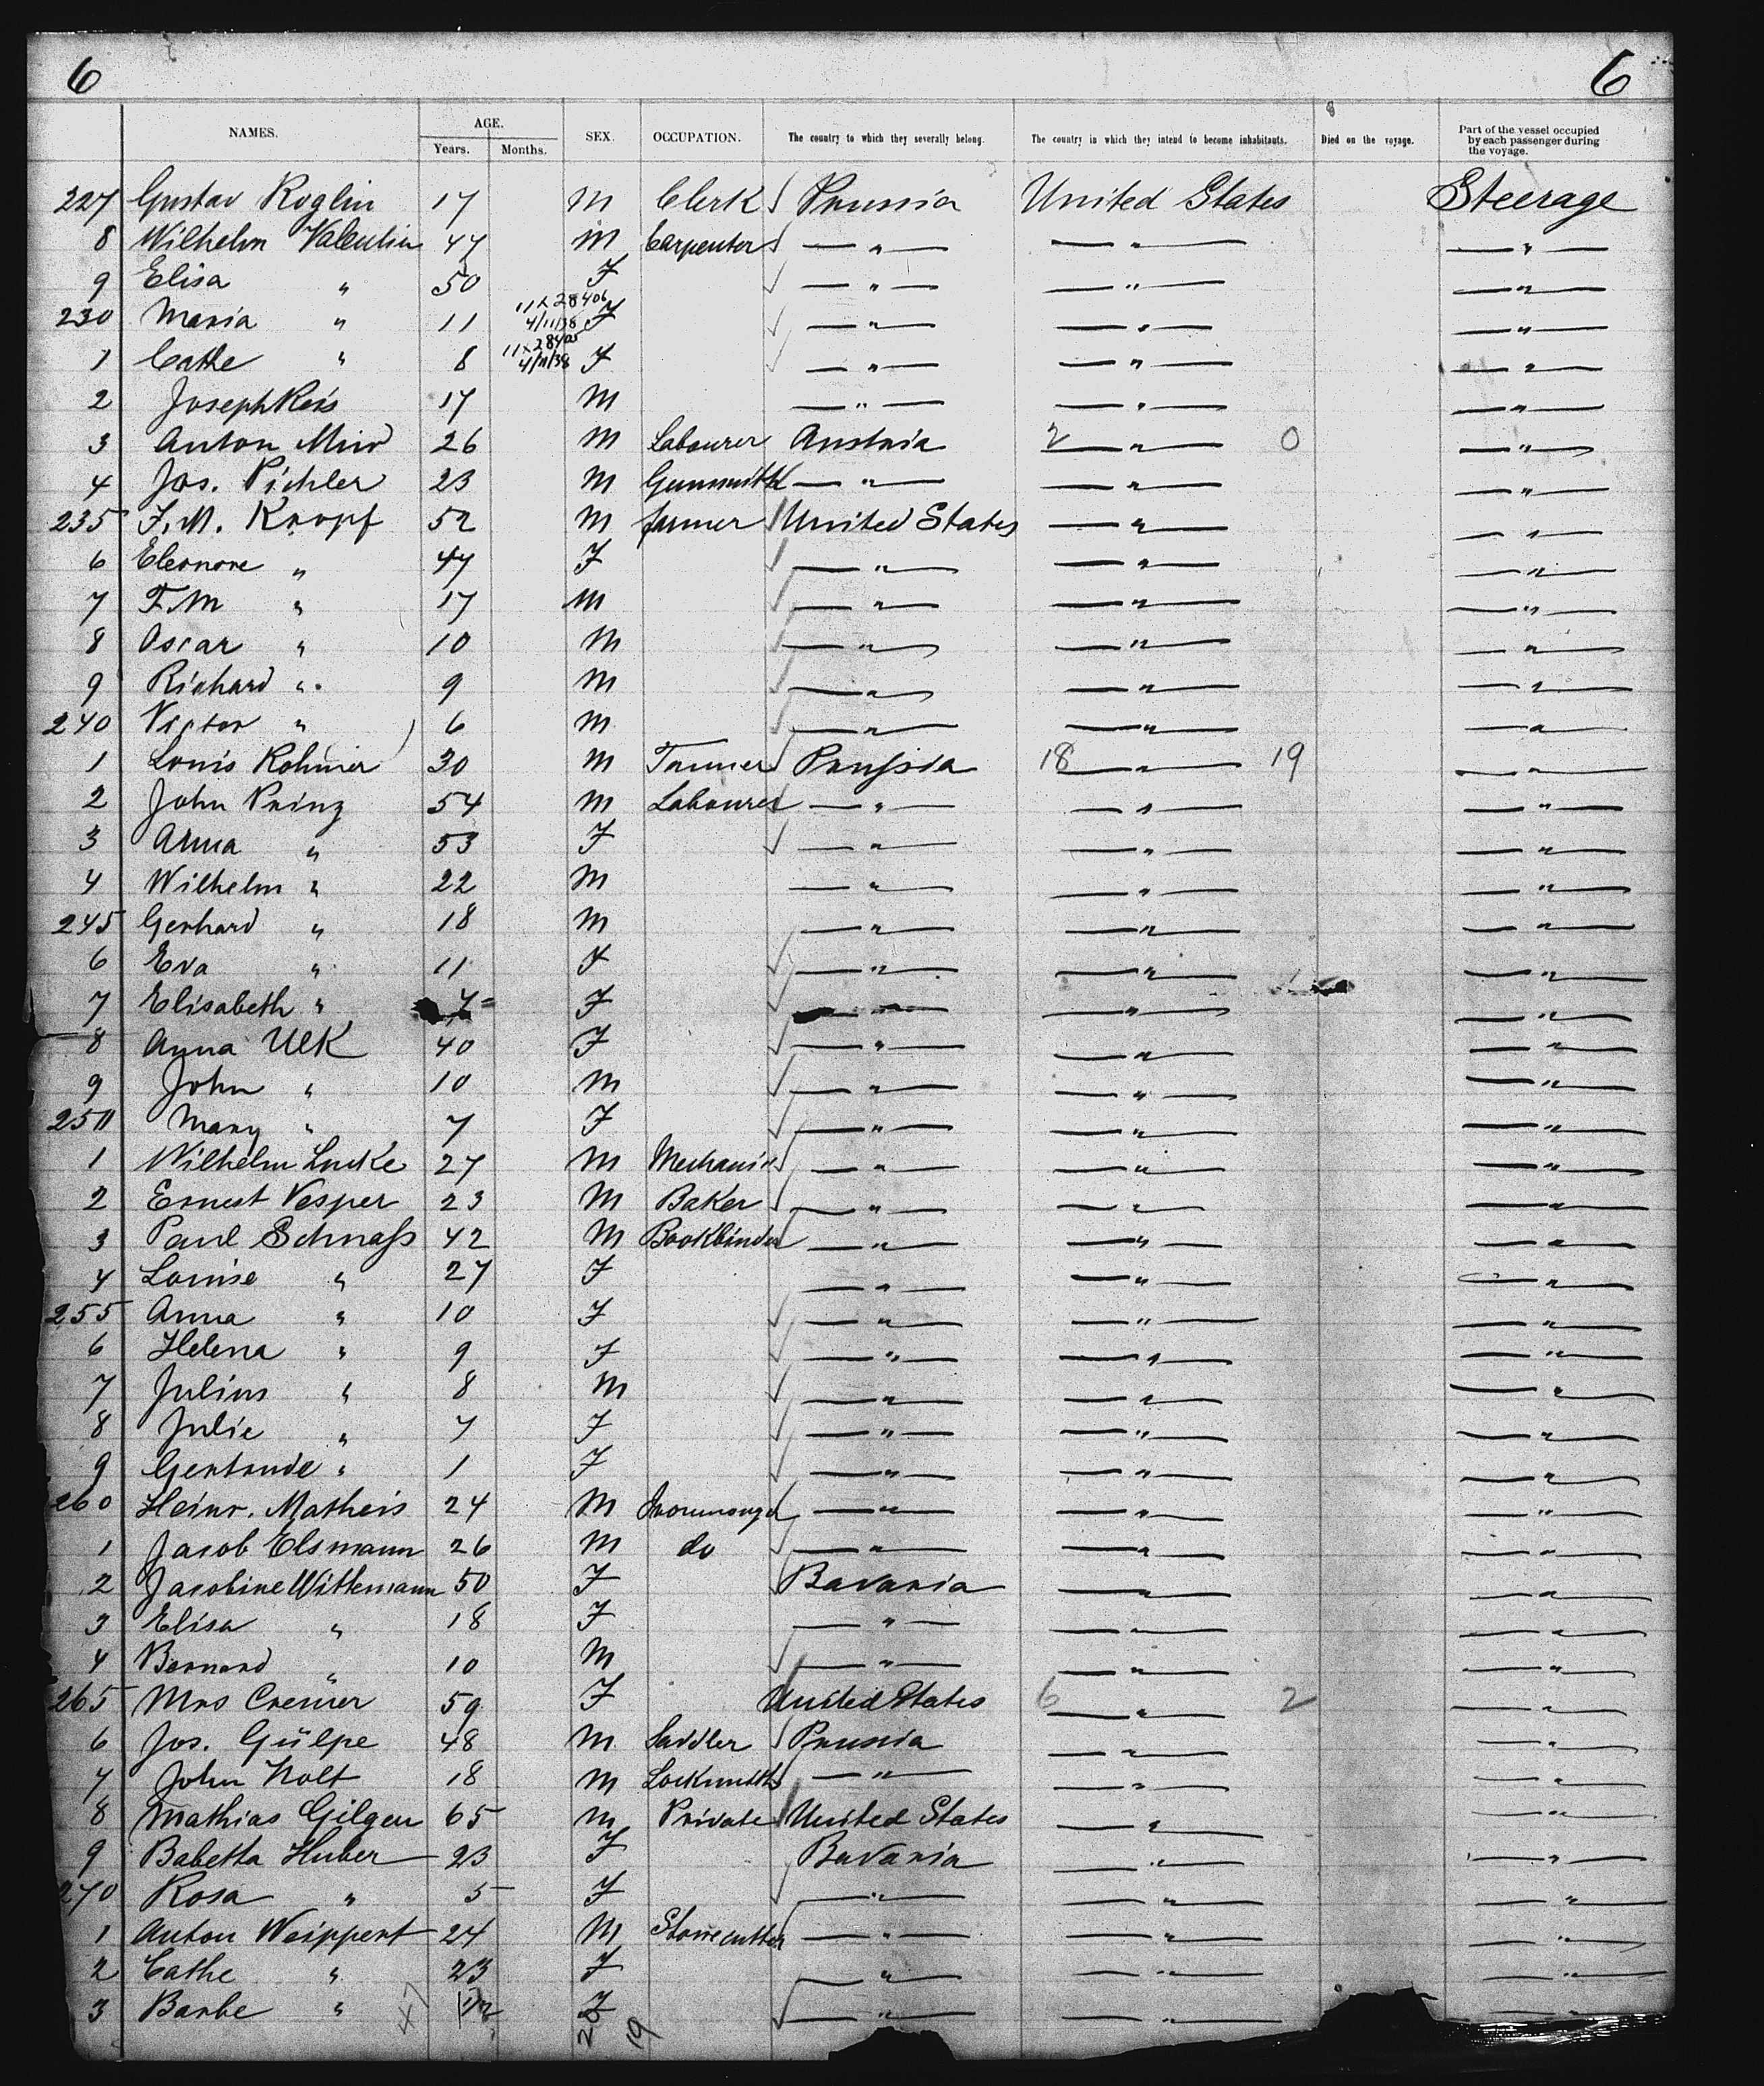 6 6
NAMES. AGE. Years. Months. SEX. OCCUPATION. The country to which they severally belong. The country in which they intend to become inhabitants. Died on the voyage. Part of the vessel occupied by each passenger during the voyage.
227 Gustav Roglin 17 M Clerk Prussia United States Steerage
8 Wilhelm Valentin 47 M Carpenter — " — — " — — " —
9 Elisa " 50 F — " — — " — — " —
230 Maria " 11 11x28406 4/11/38 F — " — — " — — " —
1 Cathe " 8 11x28405 4/11/38 F — " — — " — — " —
2 Joseph Reis 17 M — " — — " — — " —
3 Anton Miró 26 M Labourer Austria 2 — " — 0 — " —
4 Jos. Pichler 23 M Gunsmith — " — — " — — " —
235 F. M. Knopf 52 M farmer United States — " — — " —
6 Eleonore " 47 F — " — — " — — " —
7 F. M " 17 M — " — — " — — " —
8 Oscar " 10 M — " — — " — — " —
9 Richard " 9 M — " — — " — — " —
240 Victor " 6 M — " — — " — — " —
1 Louis Rohmer 30 M Tanner Prussia 18 — " — 19 — " —
2 John Prinz 54 M Labourer — " — — " — — " —
3 Anna " 53 F — " — — " — — " —
4 Wilhelm " 22 M — " — — " — — " —
245 Gerhard " 18 M — " — — " — — " —
6 Eva " 11 F — " — — " — — " —
7 Elisabeth " 7 F — " — — " — — " —
8 Anna Ulk 40 F — " — — " — — " —
9 John " 10 M — " — — " — — " —
250 Mary " 7 F — " — — " — — " —
1 Wilhelm Lucke 27 M Mechanic — " — — " — — " —
2 Ernest Vesper 23 M Baker — " — — " — — " —
3 Paul Schnaß 42 M Bookbinder — " — — " — — " —
4 Louise " 27 F — " — — " — — " —
255 Anna " 10 F — " — — " — — " —
6 Helena " 9 F — " — — " — — " —
7 Julius " 8 M — " — — " — — " —
8 Julie " 7 F — " — — " — — " —
9 Gertrude " 1 F — " — — " — — " —
260 Heinr. Matheis 24 M Ironmonger — " — — " — — " —
1 Jacob Elsmann 26 M do — " — — " — — " —
2 Jacobine Wittemann 50 F Bavaria — " — — " —
3 Elisa " 18 F — " — — " — — " —
4 Bernard " 10 M — " — — " — — " —
265 Mrs Cremer 59 F United States 6 — " — 2 — " —
6 Jos. Gülpe 48 M Saddler Prussia — " — — " —
7 John Nolt 18 M Locksmith — " — — " — — " —
8 Mathias Gilgen 65 M Private United States — " — — " —
9 Babetta Huber 23 F Bavaria — " — — " —
270 Rosa " 5 F — " — — " — — " —
1 Anton Weippert 24 M Stonecutter — " — — " — — " —
2 Cathe " 23 F — " — — " — — " —
3 Barbe " 1/2 F — " — — " — — " —
47 28 19